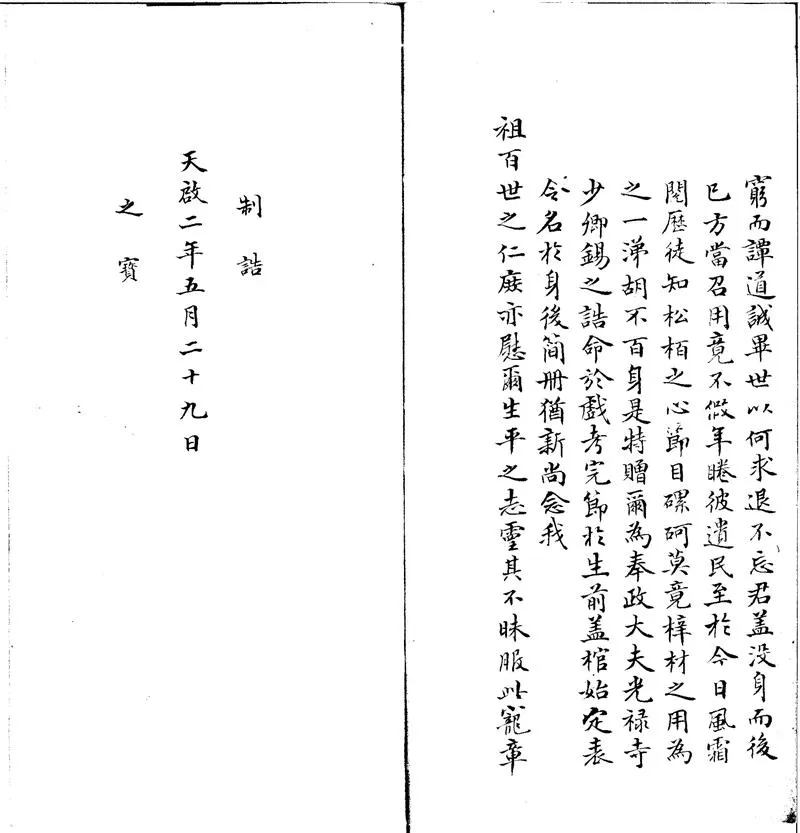 窮而譚道誠畢世以何求退不忘君蓋没身而後
已方當召用竟不假年睠彼遺民至於今日風霜
閱歷徒知松栢之心節目磥砢莫竟梓材之用為
之一涕胡不百身是特贈爾為奉政大夫光禄寺
少卿錫之誥命於戲考完節於生前蓋棺始定表
令名於身後简册猶新尚念我
祖百世之仁庶亦慰爾生平之志靈其不昧服此寵章
制誥
天啟二年五月二十九日
之寳